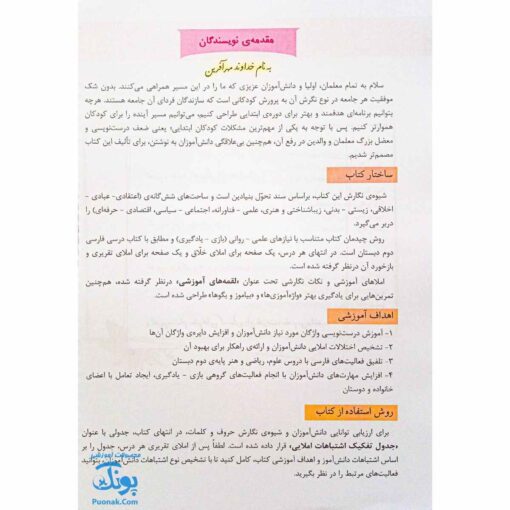 مقدمه‌ی نویسندگان
به نام خداوند مهرآفرین
سلام به تمام معلمان، اولیا و دانش‌آموزان عزیزی که ما را در این مسیر همراهی می‌کنند. بدون شک
موفقیت هر جامعه در نوع نگرش آن به پرورش کودکانی است که سازندگان فردای آن جامعه هستند. هرچه
بتوانیم برنامه‌ای هدفمند و بهتر برای دوره‌ی ابتدایی طراحی کنیم، می‌توانیم مسیر آینده را برای کودکان
هموارتر کنیم. پس با توجه به یکی از مهم‌ترین مشکلات کودکان ابتدایی؛ یعنی ضعف درست‌نویسی و
معضل بزرگ معلمان و والدین در رفع آن، هم‌چنین بی‌علاقگی دانش‌آموزان به نوشتن، برای تألیف این کتاب
مصمم‌تر شدیم.
ساختار کتاب
شیوه‌ی نگارش این کتاب، براساس سند تحوّل بنیادین است و ساحت‌های شش‌گانه‌ی (اعتقادی- عبادی -
اخلاقی، زیستی - بدنی، زیباشناختی و هنری، علمی - فناورانه، اجتماعی - سیاسی، اقتصادی - حرفه‌ای) را
دربر می‌گیرد.
روش چیدمان کتاب متناسب با نیازهای علمی - روانی (بازی - یادگیری) و مطابق با کتاب درسی فارسی
دوم دبستان است. در انتهای هر درس، یک صفحه برای املای خلّاق و یک صفحه برای املای تقریری و
بازخورد آن درنظر گرفته شده است.
املاهای آموزشی و نکات نگارشی تحت عنوان «لقمه‌های آموزشی» درنظر گرفته شده، هم‌چنین
تمرین‌هایی برای یادگیری بهتر «واژه‌آموزی‌ها» و «بیاموز و بگوها» طراحی شده است.
اهداف آموزشی
۱- آموزش درست‌نویسی واژگان مورد نیاز دانش‌آموزان و افزایش دایره‌ی واژگان آن‌ها
۲- تشخیص اختلالات املایی دانش‌آموزان و ارائه‌ی راهکار برای بهبود آن
۳- تلفیق فعالیت‌های فارسی با دروس علوم، ریاضی و هنر پایه‌ی دوم دبستان
۴- افزایش مهارت‌های دانش‌آموزان با انجام فعالیت‌های گروهی بازی - یادگیری، ایجاد تعامل با اعضای
خانواده و دوستان
روش استفاده از کتاب
برای ارزیابی توانایی دانش‌آموزان و شیوه‌ی نگارش حروف و کلمات، در انتهای کتاب، جدولی با عنوان
«جدول تفکیک اشتباهات املایی» قرار داده شده است. لطفاً پس از املای تقریری هر درس، جدول را بر
اساس اشتباهات دانش‌آموز و اهداف آموزشی کتاب، کامل کنید تا با تشخیص نوع اشتباهات دانش‌آموزان، بتوانید
فعالیت‌های مرتبط را در نظر بگیرید.
پونک
Puonak.Com